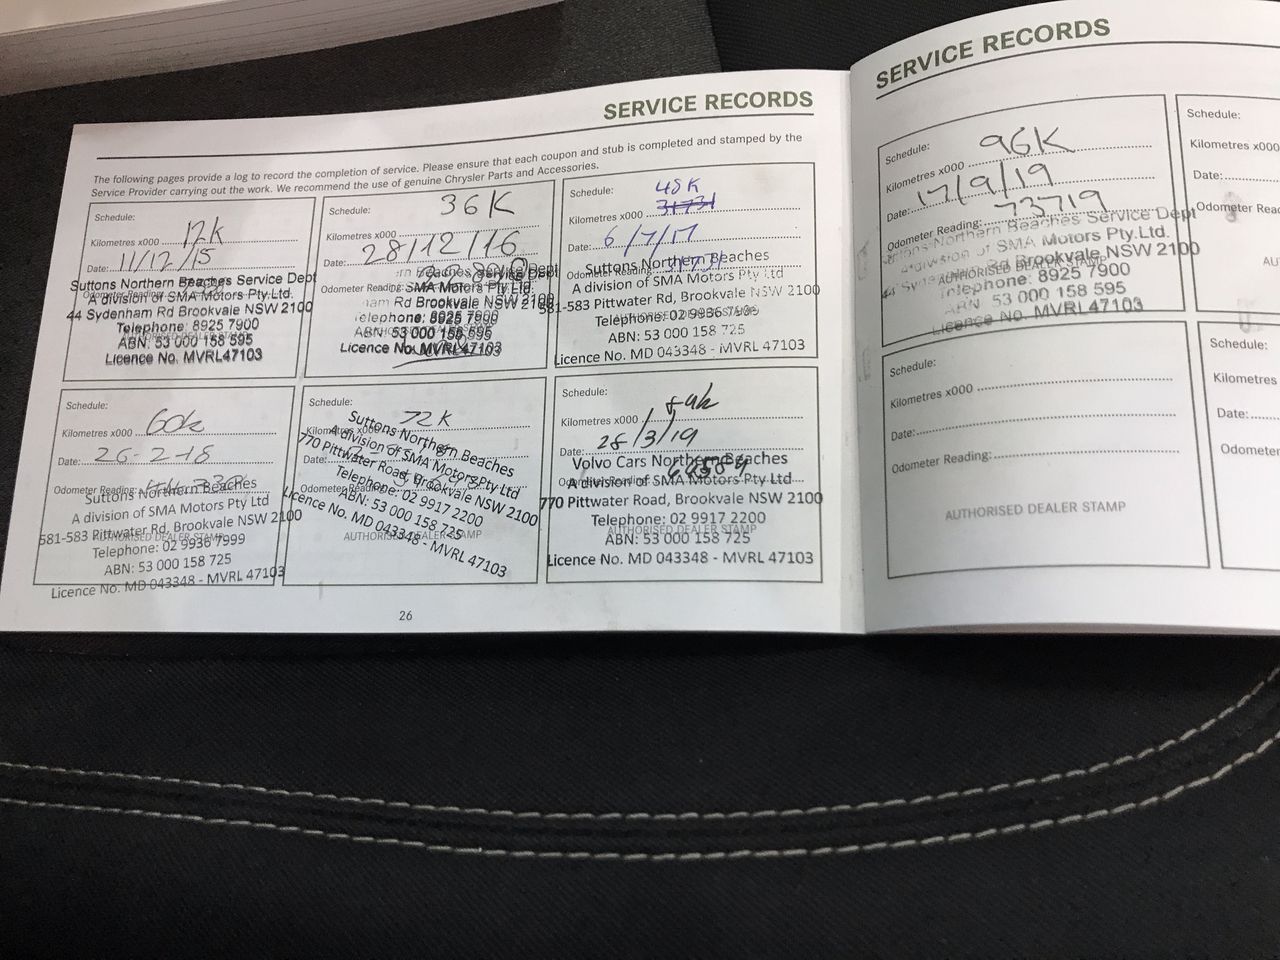 SERVICE RECORDS
The following pages provide a log to record the completion of service. Please ensure that each coupon and stub is completed and stamped by the
Service Provider carrying out the work. We recommend the use of genuine Chrysler Parts and Accessories.
Schedule:
Kilometres x000 12k
Date: 11/12/15
Suttons Northern Beaches Service Dept
Odometer Reading:
A division of SMA Motors Pty.Ltd.
44 Sydenham Rd Brookvale NSW 2100
Telephone: 8925 7900
ABN: 53 000 158 595
Licence No. MVRL47103
Schedule: 36K
Kilometres x000
Date: 28/12/16
Beaches Service Dept
Odometer Reading: SMA Motors Pty.Ltd.
ham Rd Brookvale NSW 2100
elephone: 8925 7900
ABN: 53 000 158 595
Licence No. MVRL47103
Schedule: 48K
Kilometres x000 31731
Date: 6/7/17
Suttons Northern Beaches
Odometer Reading: 31731
A division of SMA Motors Pty Ltd
581-583 Pittwater Rd, Brookvale NSW 2100
Telephone: 02 9936 7999
ABN: 53 000 158 725
Licence No. MD 043348 - MVRL 47103
Schedule:
Kilometres x000 60k
Date: 26-2-18
Odometer Reading:
Suttons Northern Beaches
A division of SMA Motors Pty Ltd
581-583 Pittwater Rd, Brookvale NSW 2100
AUTHORISED DEALER STAMP
Telephone: 02 9936 7999
ABN: 53 000 158 725
Licence No. MD 043348 - MVRL 47103
Schedule: 72K
Kilometres x000
Date:
Odometer Reading:
Suttons Northern Beaches
A division of SMA Motors Pty Ltd
770 Pittwater Road, Brookvale NSW 2100
Telephone: 02 9917 2200
ABN: 53 000 158 725
AUTHORISED DEALER STAMP
Licence No. MD 043348 - MVRL 47103
Schedule:
Kilometres x000 84k
Date: 28/3/19
Volvo Cars Northern Beaches
Odometer Reading:
A division of SMA Motors Pty Ltd
770 Pittwater Road, Brookvale NSW 2100
Telephone: 02 9917 2200
AUTHORISED DEALER STAMP
ABN: 53 000 158 725
Licence No. MD 043348 - MVRL 47103
26
SERVICE RECORDS
Schedule: 96K
Kilometres x000
Date: 17/9/19
Odometer Reading: 73719
Suttons Northern Beaches Service Dept
A division of SMA Motors Pty.Ltd.
44 Sydenham Rd Brookvale NSW 2100
AUTHORISED DEALER STAMP
Telephone: 8925 7900
ABN: 53 000 158 595
Licence No. MVRL47103
Schedule:
Kilometres x000
Date:
Odometer Reading:
AUTHORISED DEALER STAMP
Schedule:
Kilometres x000
Date:
Odometer Rea
AU
Schedule:
Kilometres
Date:
Odometer